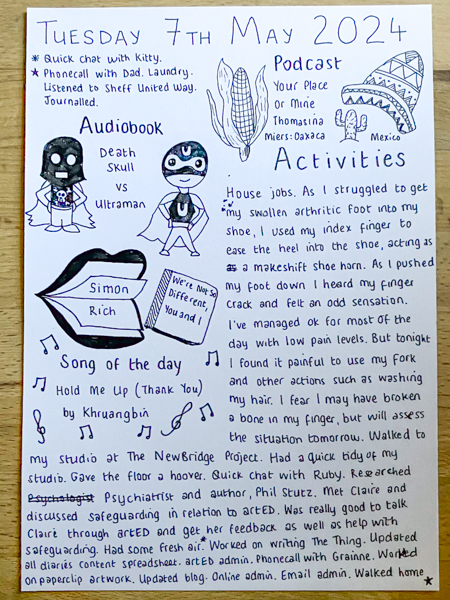 TUESDAY 7TH MAY 2024
* Quick chat with Kitty.
★ Phonecall with Dad. Laundry.
Listened to Sheff United Way.
Journalled.
Podcast
Your Place
Or Mine
Thomasina
Miers: Oaxaca
Mexico
Audiobook
Death
Skull
vs
Ultraman
U
U
Simon
Rich
We're Not So
Different,
You and I
Song of the day
Hold Me Up (Thank You)
by Khruangbin
Activities
House jobs. As I struggled to get
my swollen arthritic foot into my
shoe, I used my index finger to
ease the heel into the shoe, acting as
as a makeshift shoe horn. As I pushed
my foot down I heard my finger
crack and felt an odd sensation.
I've managed ok for most of the
day with low pain levels. But tonight
I found it painful to use my fork
and other actions such as washing
my hair. I fear I may have broken
a bone in my finger, but will assess
the situation tomorrow. Walked to
my studio at The NewBridge Project. Had a quick tidy of my
studio. Gave the floor a hoover. Quick chat with Ruby. Researched
Psychologist Psychiatrist and author, Phil Stutz. Met Claire and
discussed safeguarding in relation to artED. Was really good to talk
Claire through artED and get her feedback as well as help with
safeguarding. Had some fresh air.* Worked on writing The Thing. Updated
all diaries content spreadsheet. artED admin. Phonecall with Grainne. Worked
on paperclip artwork. Updated blog. Online admin. Email admin. Walked home ★